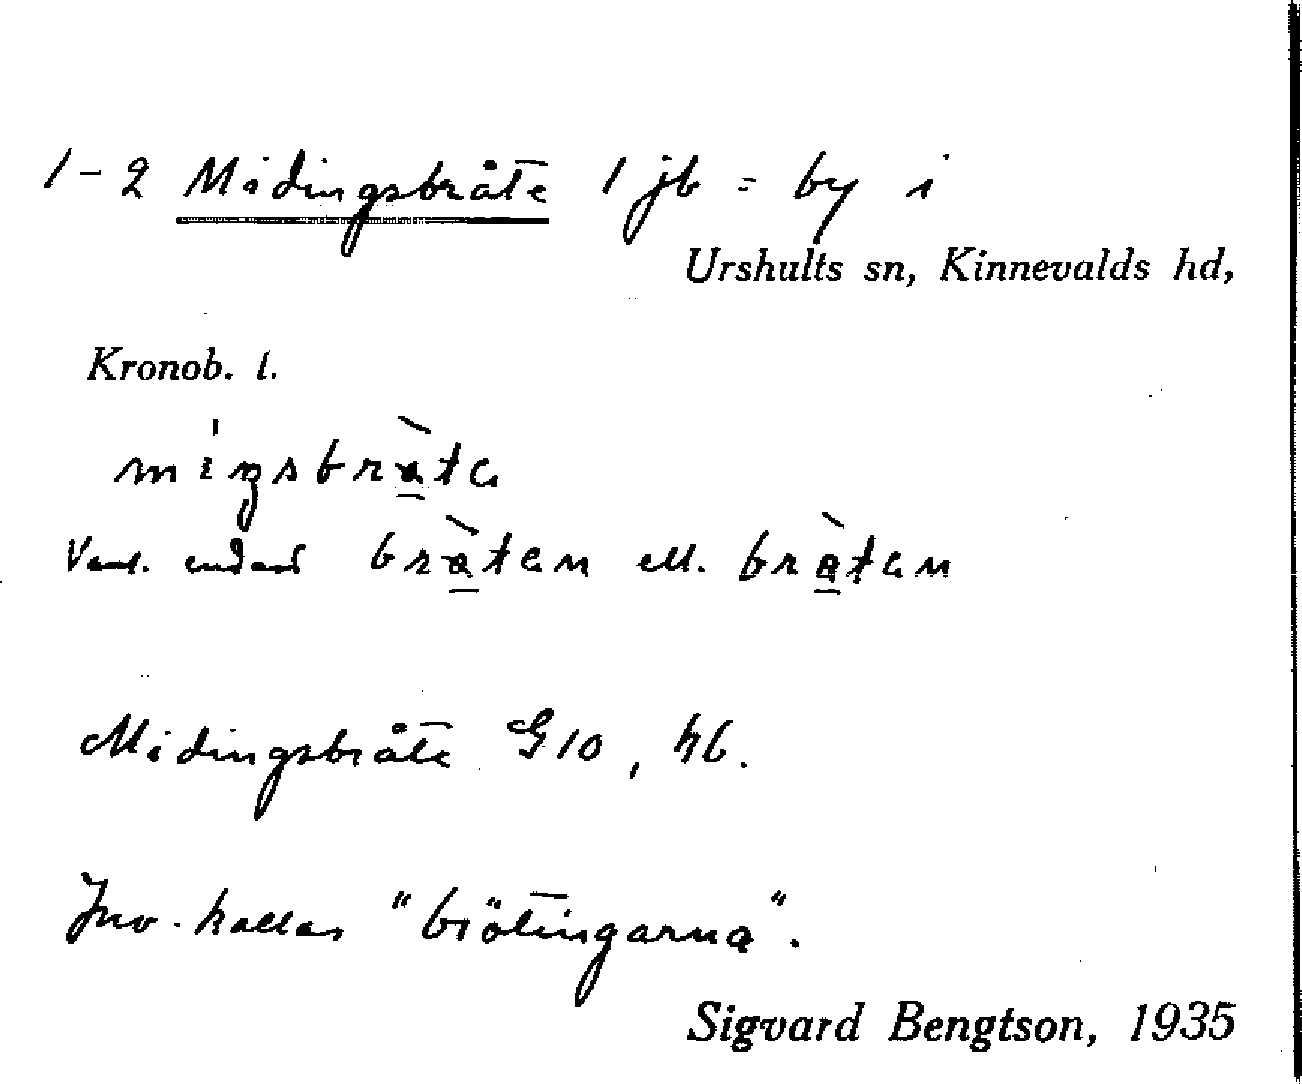 1-2 Midingsbråte 1 jb = by i
Urshults sn, Kinnevalds hd,
Kronob. l.
mi̍ŋsbrà̠ta
Vanl. endast brà̠tan ell. brà̠tan
Midingsbråte G10, hb.
Inv. kallas "brötingarna".
Sigvard Bengtson, 1935